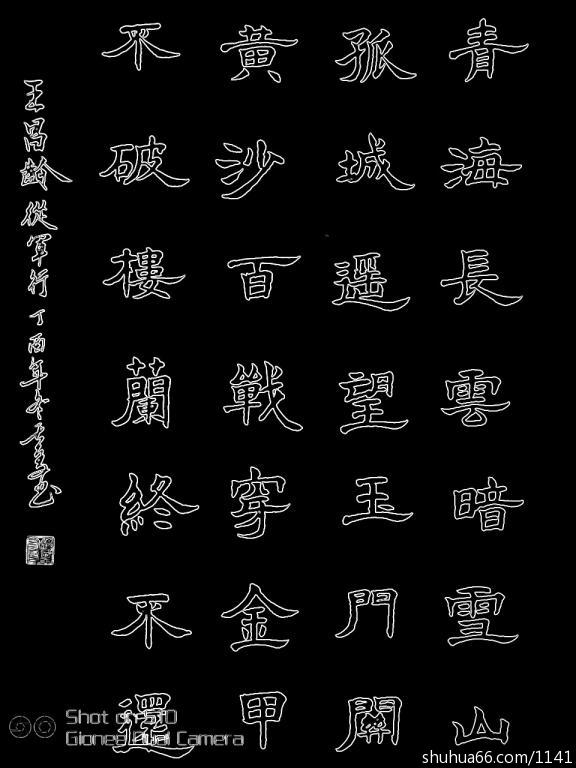 青海長雲暗雪山
孤城遥望玉門關
黃沙百戰穿金甲
不破樓蘭終不還
王昌齡從軍行丁酉年冬
Shot on S10
Gionee Dual Camera
shuhua66.com/1141